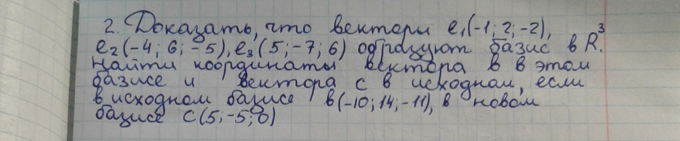 2. Доказать, что вектори e₁(-1; 2; -2),
e₂(-4; 6; -5), e₃(5; -7; 6) образуют базис в R³.
Найти координаты вектора в в этом
базисе и вектора с в исходном, если
в исходном базисе в(-10; 14; -11), в новом
базисе с(5; -5; 0)